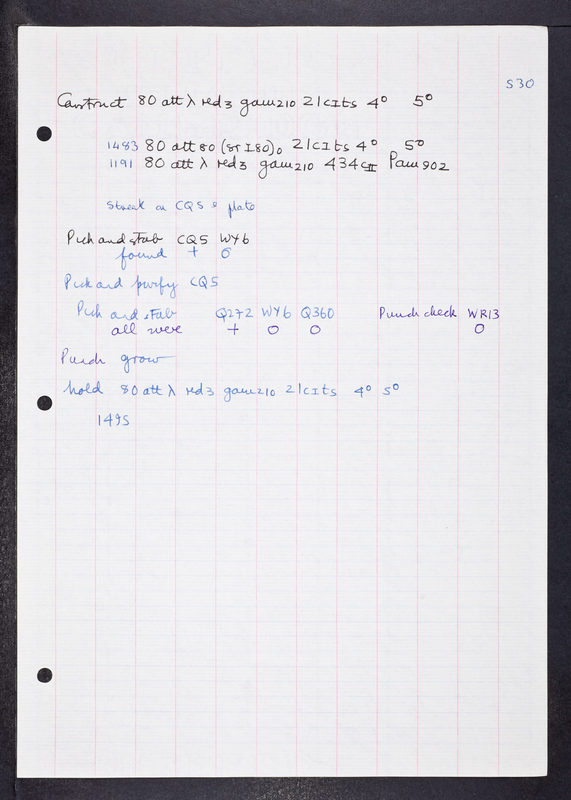 S30
Construct 80 att λ red3 gam210 21cIts 4° 5°
1483 80 att80 (sr I80)0 21cIts 4° 5°
1191 80 att λ red3 gam210 434cII Pam902
Streak on CQS plate
Pick and stab CQS WY6
found + 0
Pick and purify CQS
Pick and stab Q272 WY6 Q360 Punch check WR13
all were + 0 0 0
Punch grow
hold 80 att λ red3 gam210 21cIts 4° 5°
1495